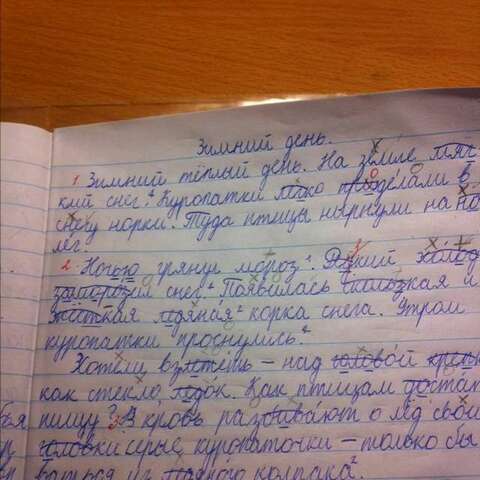 Зимний день.
1 Зимний тёплый день. На земле мяг-
кий снег. Куропатки легко проделали в
снегу норки. Туда птицы нырнули на но
лег.
2 Ночью грянул мороз. Редкий холод
заморозил снег. Появилась скользкая и
жёсткая ледяная корка снега. Утром
куропатки проснулись.
Хотели взлететь – над головой креп
как стекло ледок. Как птицам достат
пищу? В кровь разбивают о лёд свои
головки серые куропаточки – только бы
ваться из ледяного колпака.